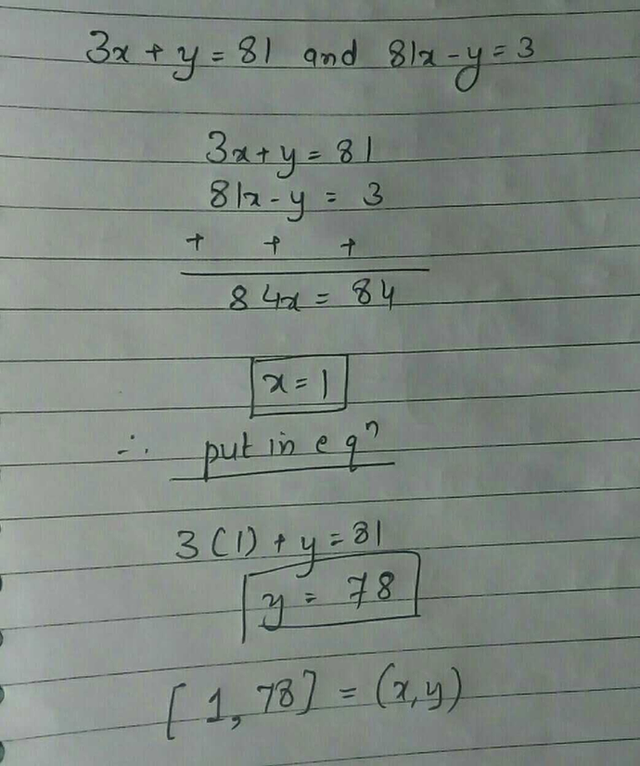 3x + y = 81 and 81x - y = 3
3x + y = 81
81x - y = 3
+ + +
84x = 84
x = 1
∴ put in eqⁿ
3(1) + y = 81
y = 78
[1, 78] = (x, y)